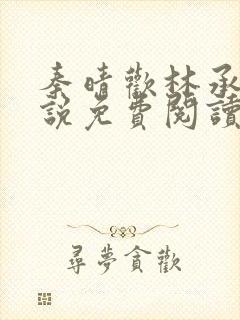 秦晴歡林承
說免費閱讀
尋夢貪歡